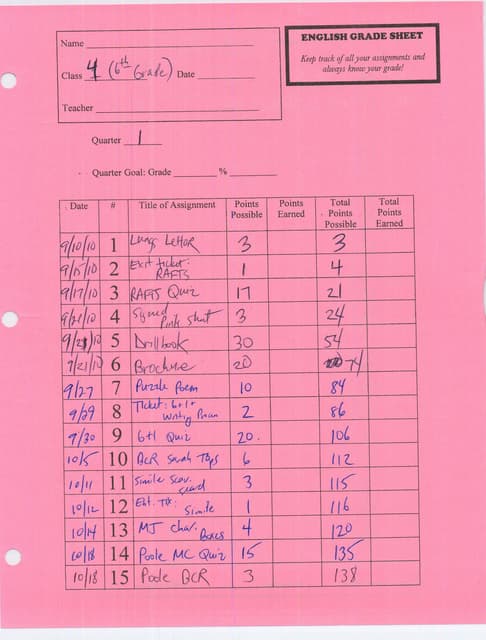 ENGLISH GRADE SHEET
Keep track of all your assignments and
always know your grade!
Name
Class 4 (6th Grade) Date
Teacher
Quarter 1
Quarter Goal: Grade %
Date # Title of Assignment Points Possible Points Earned Total Points Possible Total Points Earned
9/10/10 1 Lung Letter 3 3
9/15/10 2 Exit ticket: RAFTS 1 4
9/17/10 3 RAFTS Quiz 17 21
9/21/10 4 Signed Pink Sheet 3 24
9/21/10 5 Drillbook 30 54
9/21/10 6 Brochure 20 74
9/27 7 Puzzle Poem 10 84
9/29 8 Ticket: 6+1 Writing 2 86
9/30 9 6+1 Quiz 20. 106
10/5 10 BCR Sarah Tops 6 112
10/11 11 Simile Scav. 3 115
10/12 12 Ext. Tix: Simile 1 116
10/14 13 MJ Char. Boxes 4 120
10/18 14 Poole MC Quiz 15 135
10/18 15 Poole BCR 3 138